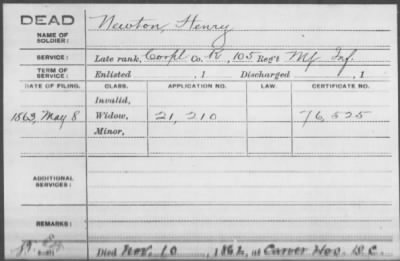 DEAD
NAME OF SOLDIER:
Newton, Henry
SERVICE:
Late rank, Corpl Co. K, 105 Reg't NY Inf.
TERM OF SERVICE:
Enlisted , 1 Discharged , 1
DATE OF FILING. CLASS. APPLICATION NO. LAW. CERTIFICATE NO.
Invalid,
1863, May 8 Widow, 21,210 76,525
Minor,
ADDITIONAL SERVICES:
REMARKS:
Died Nov. 10, 1862, at Carver Hos. D.C.